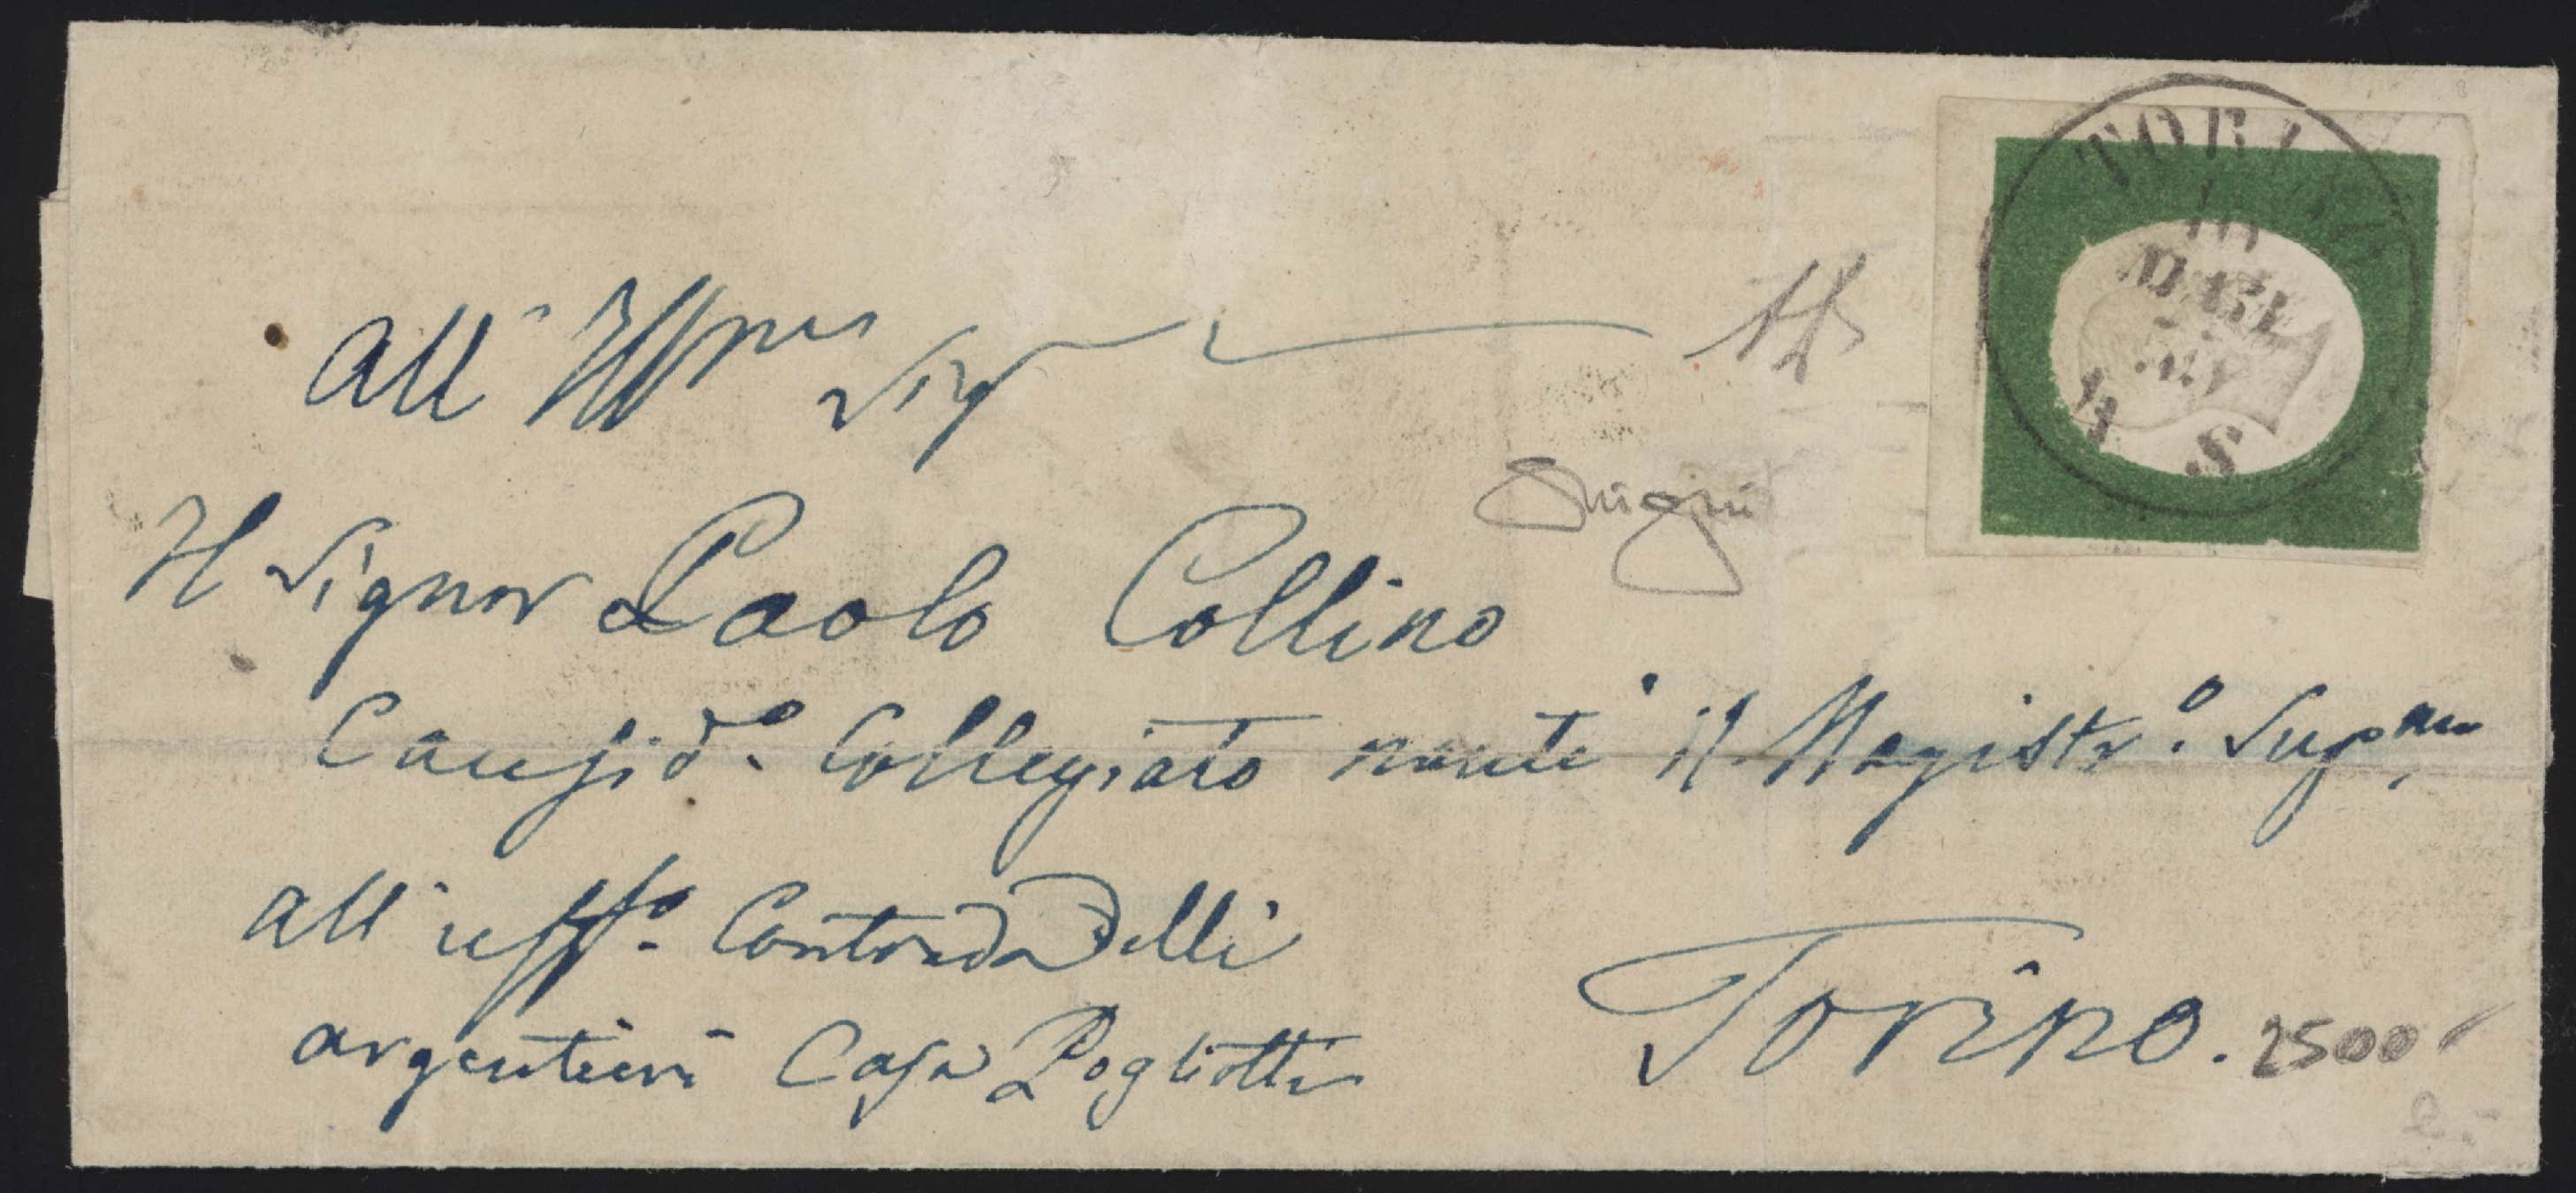 TORINO
MARZ
S
All'
Sig
Il Signor Paolo Collino
Causid.o Collegiato nanti il Magistr.o Sup
all' uff.o Contrada Delli
argentieri Casa Pogliotti
Torino.
2500
2.-